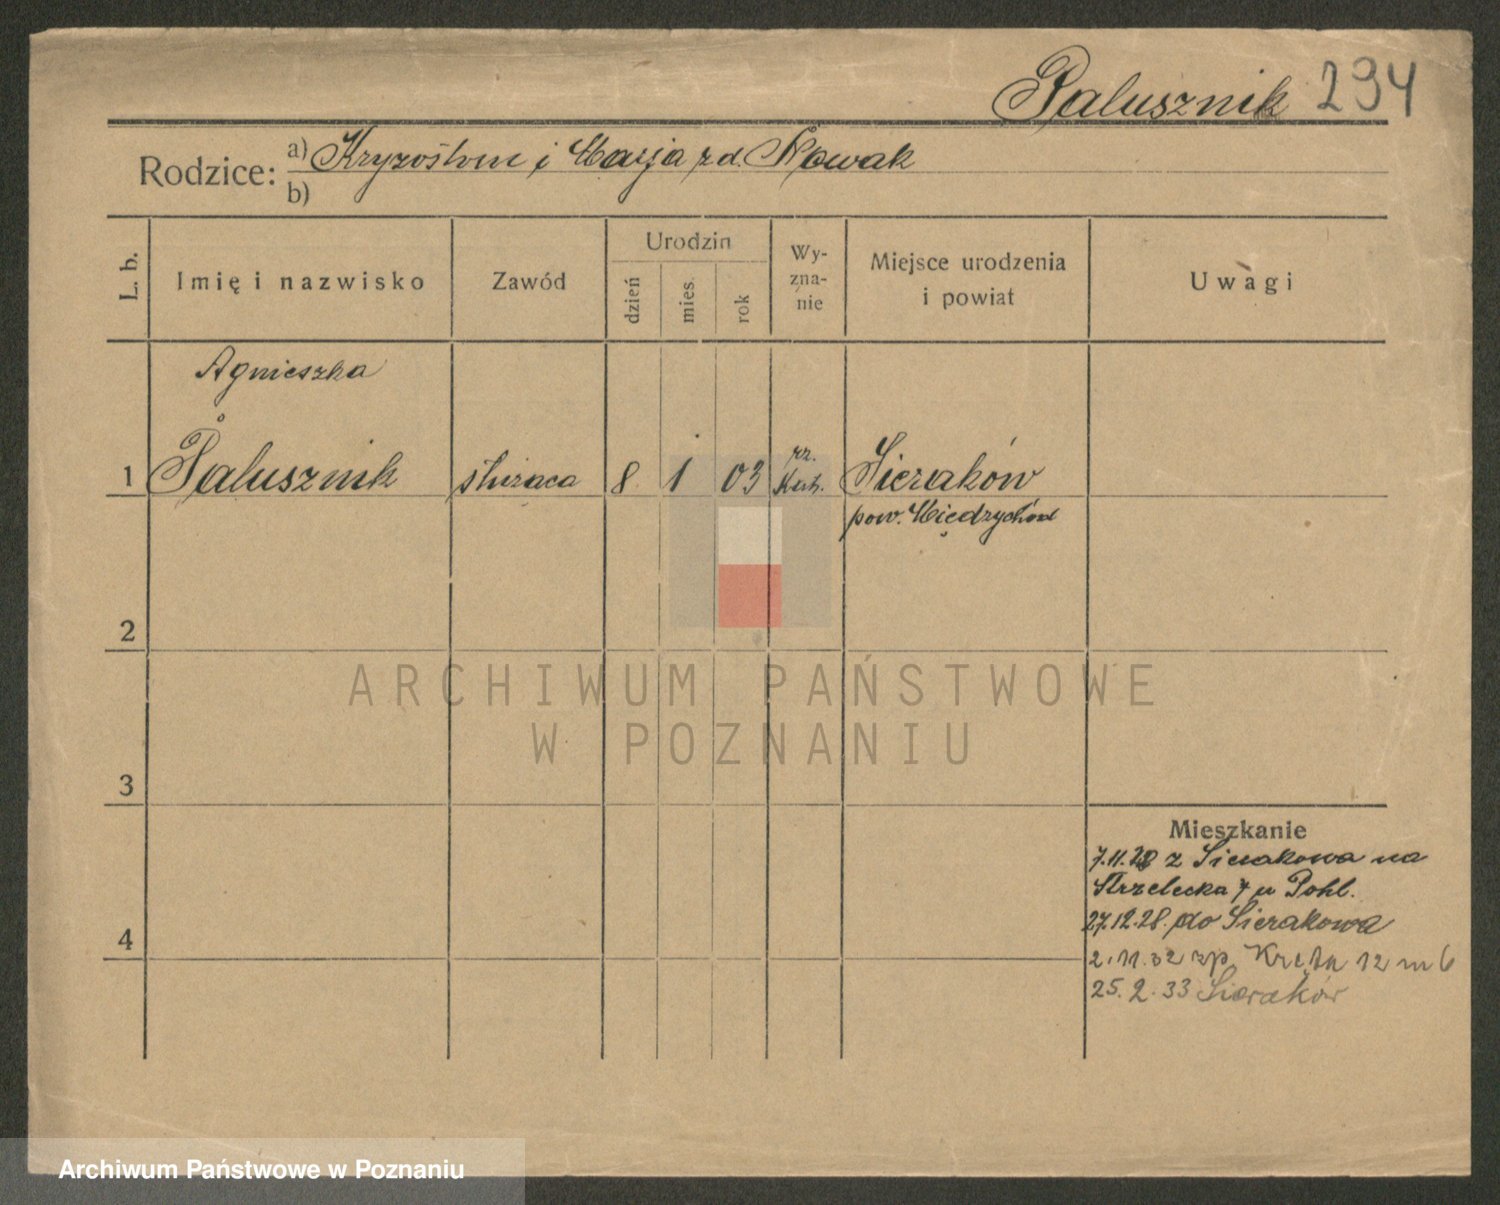 Palusznik 294
Rodzice: a) Kryzostom i Marja z d. Nowak
b)
L. b.
Imię i nazwisko
Zawód
Urodzin
dzień
mies.
rok
Wy-
zna-
nie
Miejsce urodzenia
i powiat
Uwagi
Agnieszka
1 Palusznik służąca 8 1 03 rz. Kath. Sieraków
pow. Międzychód
2
3
4
Mieszkanie
7.11.28 z Sierakowa na
Strzelecka 7 u Pohl.
27.12.28. do Sierakowa
2.11.32 zp. Kręta 12 m 6
25.2.33 Sieraków
ARCHIWUM PAŃSTWOWE
W POZNANIU
Archiwum Państwowe w Poznaniu